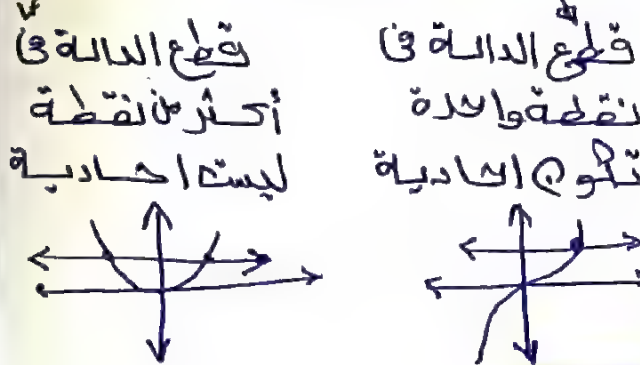 قطع الدالة في
نقطة واحدة
تكون احادية
قطع الدالة في
أكثر من نقطة
ليست احادية